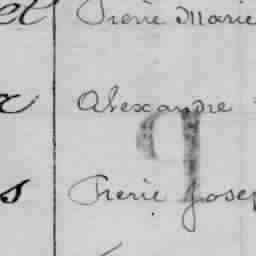 et Pierre Marie
x Alexandre
s Pierre Josep